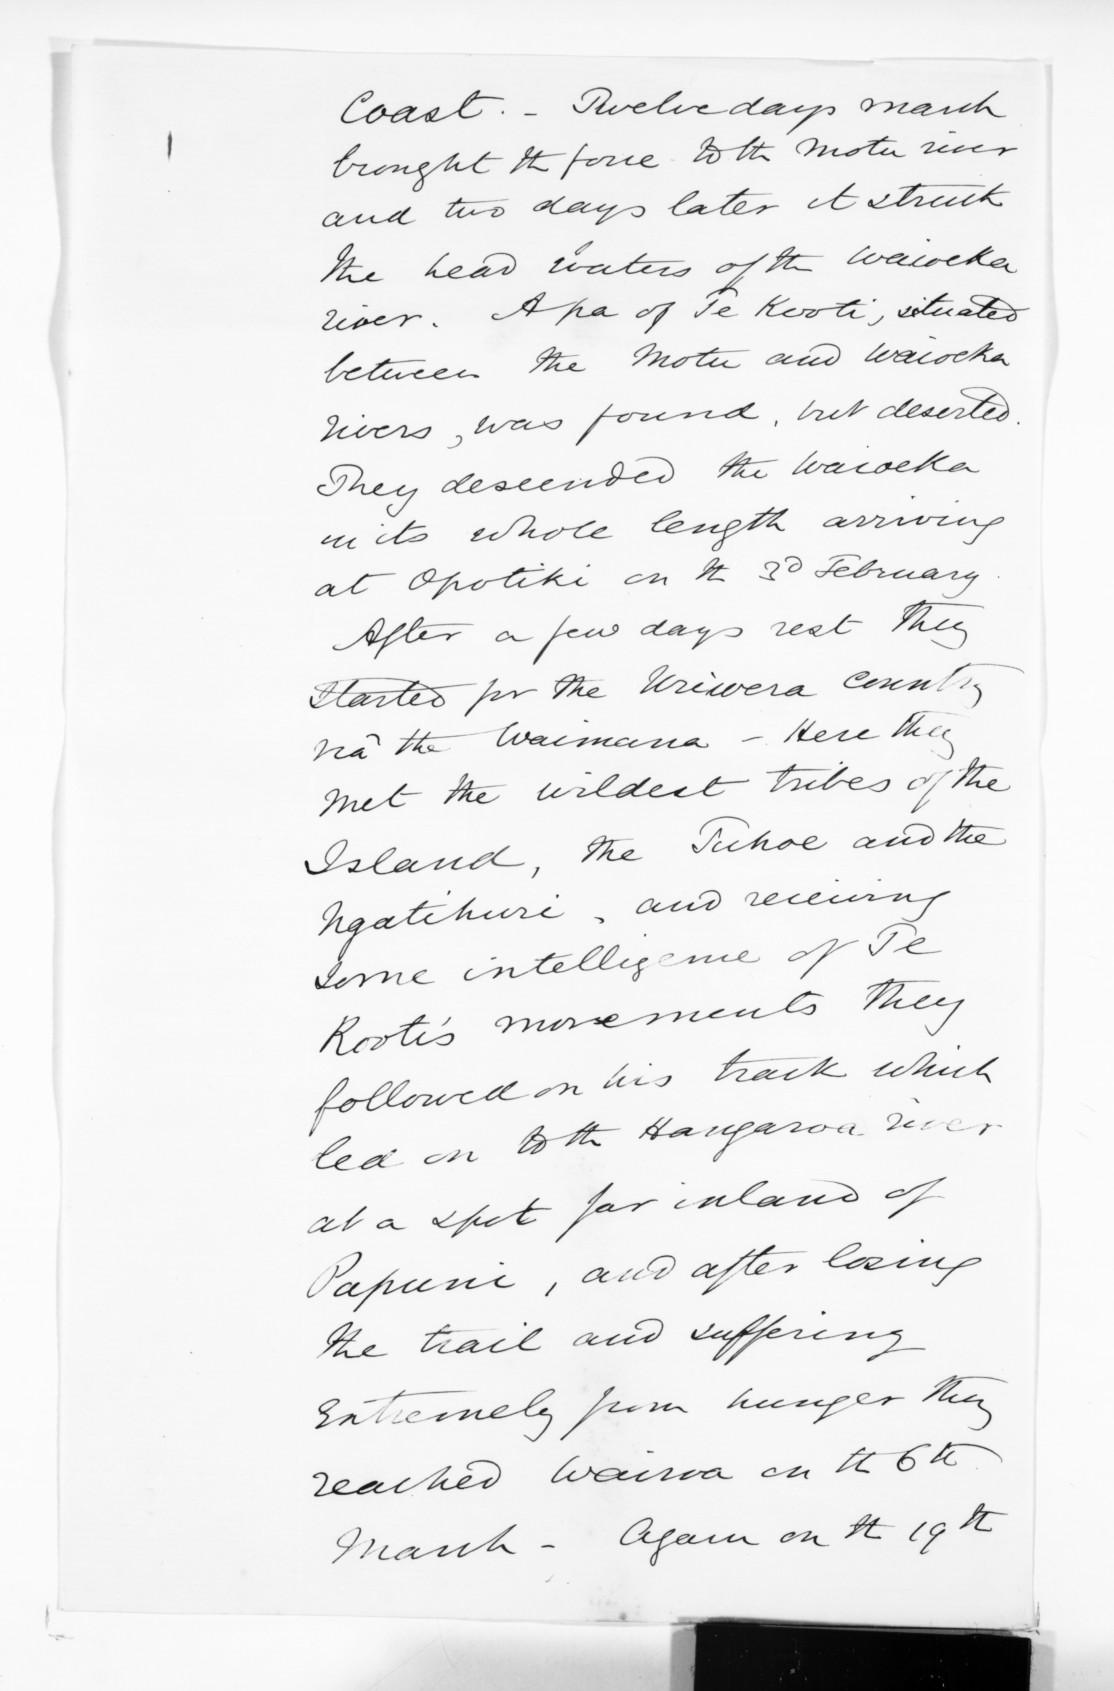 Coast. - Twelve days march
brought the force to the Motu river
and two days later it struck
the head waters of the Waioeka
river. A pa of Te Kooti, situated
between the Motu and Waioeka
rivers, was found, but deserted.
They descended the Waioeka
in its whole length arriving
at Opotiki on the 3d February.
After a few days rest they
started for the Uriwera country
viâ the Waimana - Here they
met the wildest tribes of the
Island, the Tuhoe and the
Ngatihuri, and receiving
some intelligence of Te
Kooti's movements they
followed on his track which
led on to the Hangaroa river
at a spot far inland of
Papuni, and after losing
the trail and suffering
extremely from hunger they
reached Wairoa on the 6th
March - Again on the 19th